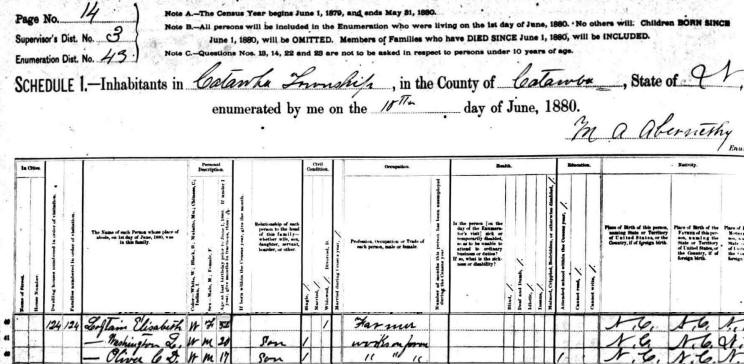 Page No. 14
Supervisor's Dist. No. 3
Enumeration Dist. No. 43
Note A.—The Census Year begins June 1, 1879, and ends May 31, 1880.
Note B.—All persons will be included in the Enumeration who were living on the 1st day of June, 1880. No others will. Children BORN SINCE
June 1, 1880, will be OMITTED. Members of Families who have DIED SINCE June 1, 1880, will be INCLUDED.
Note C.—Questions Nos. 13, 14, 22 and 23 are not to be asked in respect to persons under 10 years of age.
SCHEDULE 1.—Inhabitants in Catawba Township, in the County of Catawba, State of N.
enumerated by me on the 10th day of June, 1880.
M A Abernethy
In Cities. Personal Description. Civil Condition. Occupation. Health. Education. Nativity.
Name of Street.
House Number.
Dwelling houses numbered in order of visitation.
Families numbered in order of visitation.
The Name of each Person whose place of abode, on 1st day of June, 1880, was in this family.
Relationship of each person to the head of this family—whether wife, son, daughter, servant, boarder, or other.
Single,
Married,
Widowed, Divorced, D.
Married during Census year,
Profession, Occupation or Trade of each person, male or female.
Number of months this person has been unemployed during the Census year.
Is the person [on the day of the Enumerator's visit] sick or temporarily disabled, so as to be unable to attend to ordinary business or duties? If so, what is the sickness or disability?
Blind,
Deaf and Dumb,
Idiotic,
Insane,
Maimed, Crippled, Bedridden, or otherwise disabled,
Attended school within the Census year,
Cannot read,
Cannot write,
Place of Birth of this person, naming State or Territory of United States, or the Country, if of foreign birth.
40 124 124 Loftain Elisabeth W F 52 1 Farmer N.C. N.C. N.
41 — Washington L. W M 20 Son 1 works on farm N.C. N.C. N.
— Oliver C D W M 17 Son 1 " " " N.C. N.C.